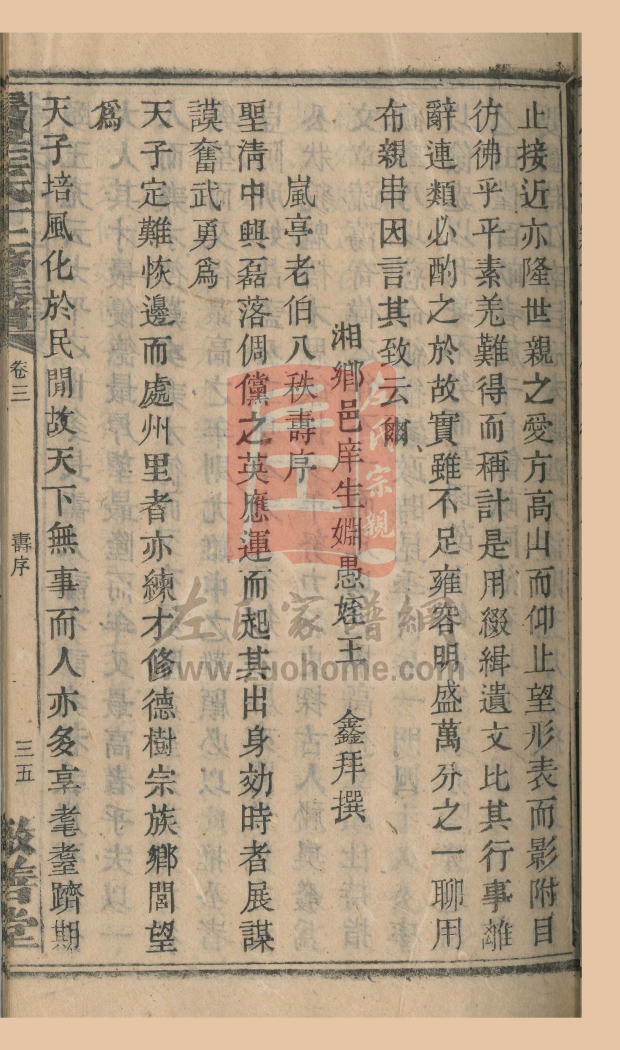 止接近亦隆世親之愛方高山而仰止望形表而影附目
彷彿乎平素羌難得而稱計是用綴緝遺文比其行事離
辭連類必酌之於故實雖不足雍容明盛萬分之一聊用
布親串因言其致云爾
湘鄉邑庠生姻愚姪王　鑫拜撰
嵐亭老伯八秩壽序
聖淸中興磊落倜儻之英應運而起其出身効時者展謀
謨奮武勇爲
天子定難恢邊而處州里者亦練才修德樹宗族鄉閭望
爲
天子培風化於民閒故天下無事而人亦多享耄耋躋期
卷三
壽序
三五
敬善堂
左氏宗親
左氏家譜網
www.zuohome.com